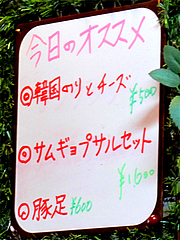 今日のオススメ
◎韓国のりとチーズ
¥500
◎サムギョプサルセット
¥1600
◎豚足 ¥600